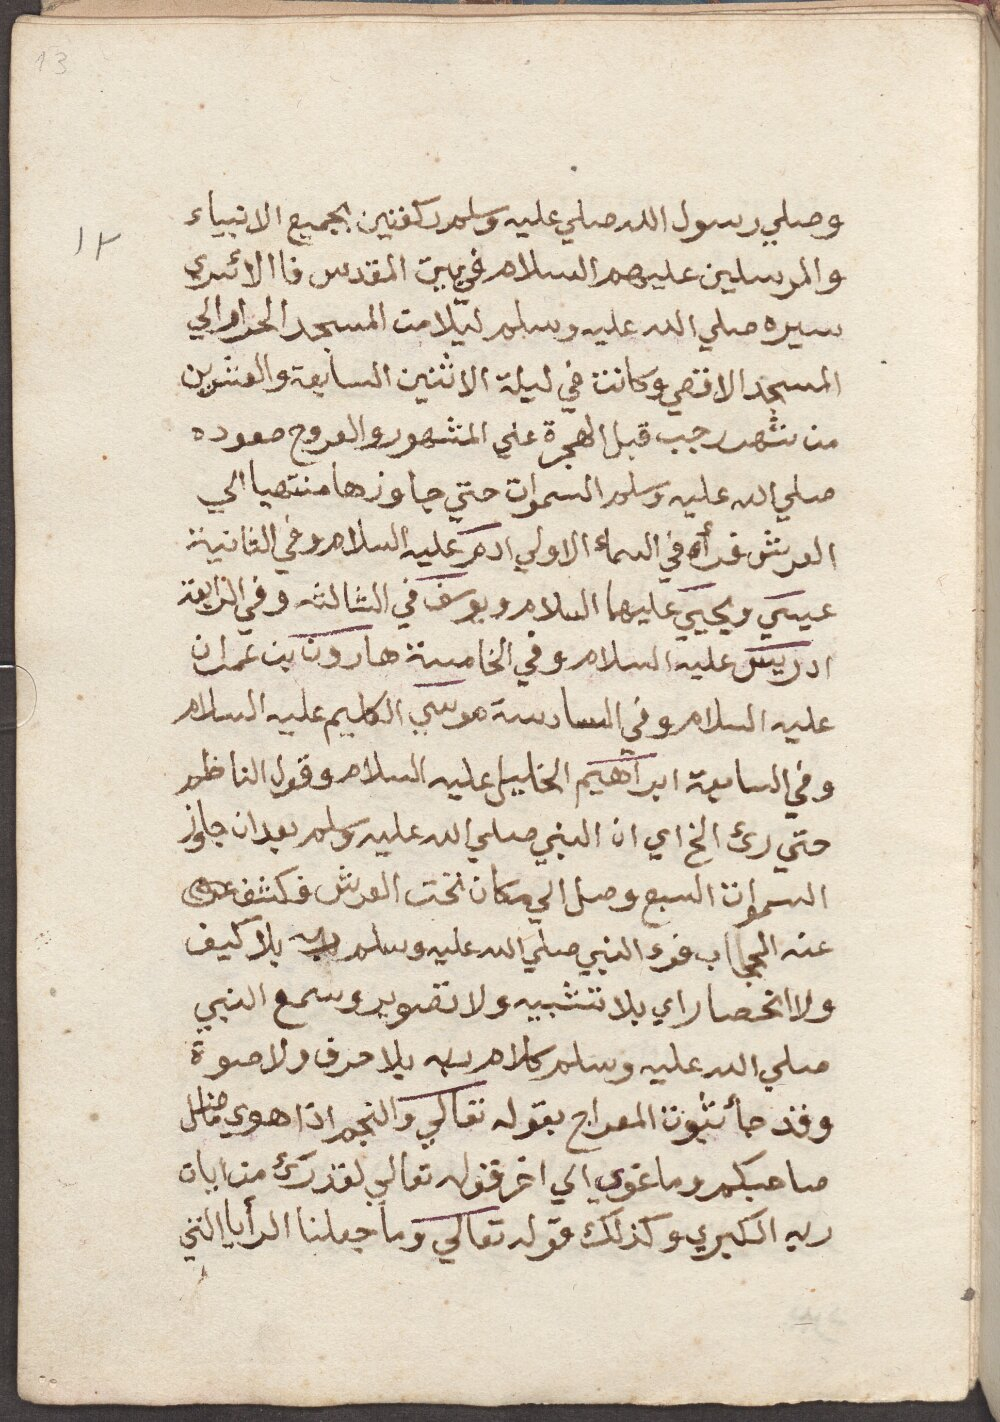 13
١٢
وصلي رسول الله صلي عليه وسلم ركعتين بجميع الانبياء
والمرسلين عليهم السلام في بيت المقدس فاالائسري
سيره صلي الله عليه وسلم ليلا من المسجد الحرام الي
المسجد الاقصي وكانت في ليلة الاثنين السابعة والعشرين
من شهر رجب قبل الهجرة علي المشهور والعروج صعوده
صلي الله عليه وسلم السموات حتي جاوزها منتهيا الي
العرش فرأه في السماء الاولي ادم عليه السلام وفي الثانية
عيسي ويحيي عليهما السلام ويوسف في الثالثه وفي الرابعة
ادريس عليه السلام وفي الخامسة هارون بن عمران
عليه السلام وفي السادسة موسي الكليم عليه السلام
وفي السابعة ابراهيم الخليل عليه السلام وقول الناظم
حتي رئ الخ اي ان النبي صلي الله عليه وسلم بعد ان جاوز
السموات السبع وصل الي مكان تحت العرش فكشف
عنه الحجاب فرء النبي صلي الله عليه وسلم ربه بلا كيف
ولا انحصار اي بلا تشبيه ولا تصوير وسمع النبي
صلي الله عليه وسلم كلام ربه بلا حرف ولا صوة
وقد جأ ثبوت المعراج بقوله تعالي والنجم اذا هوي ما ضل
صاحبكم وما غوي الي اخر قوله تعالي لقد رئ من ايات
ربه الكبري وكذلك قوله تعالي وما جعلنا الرأيا التي